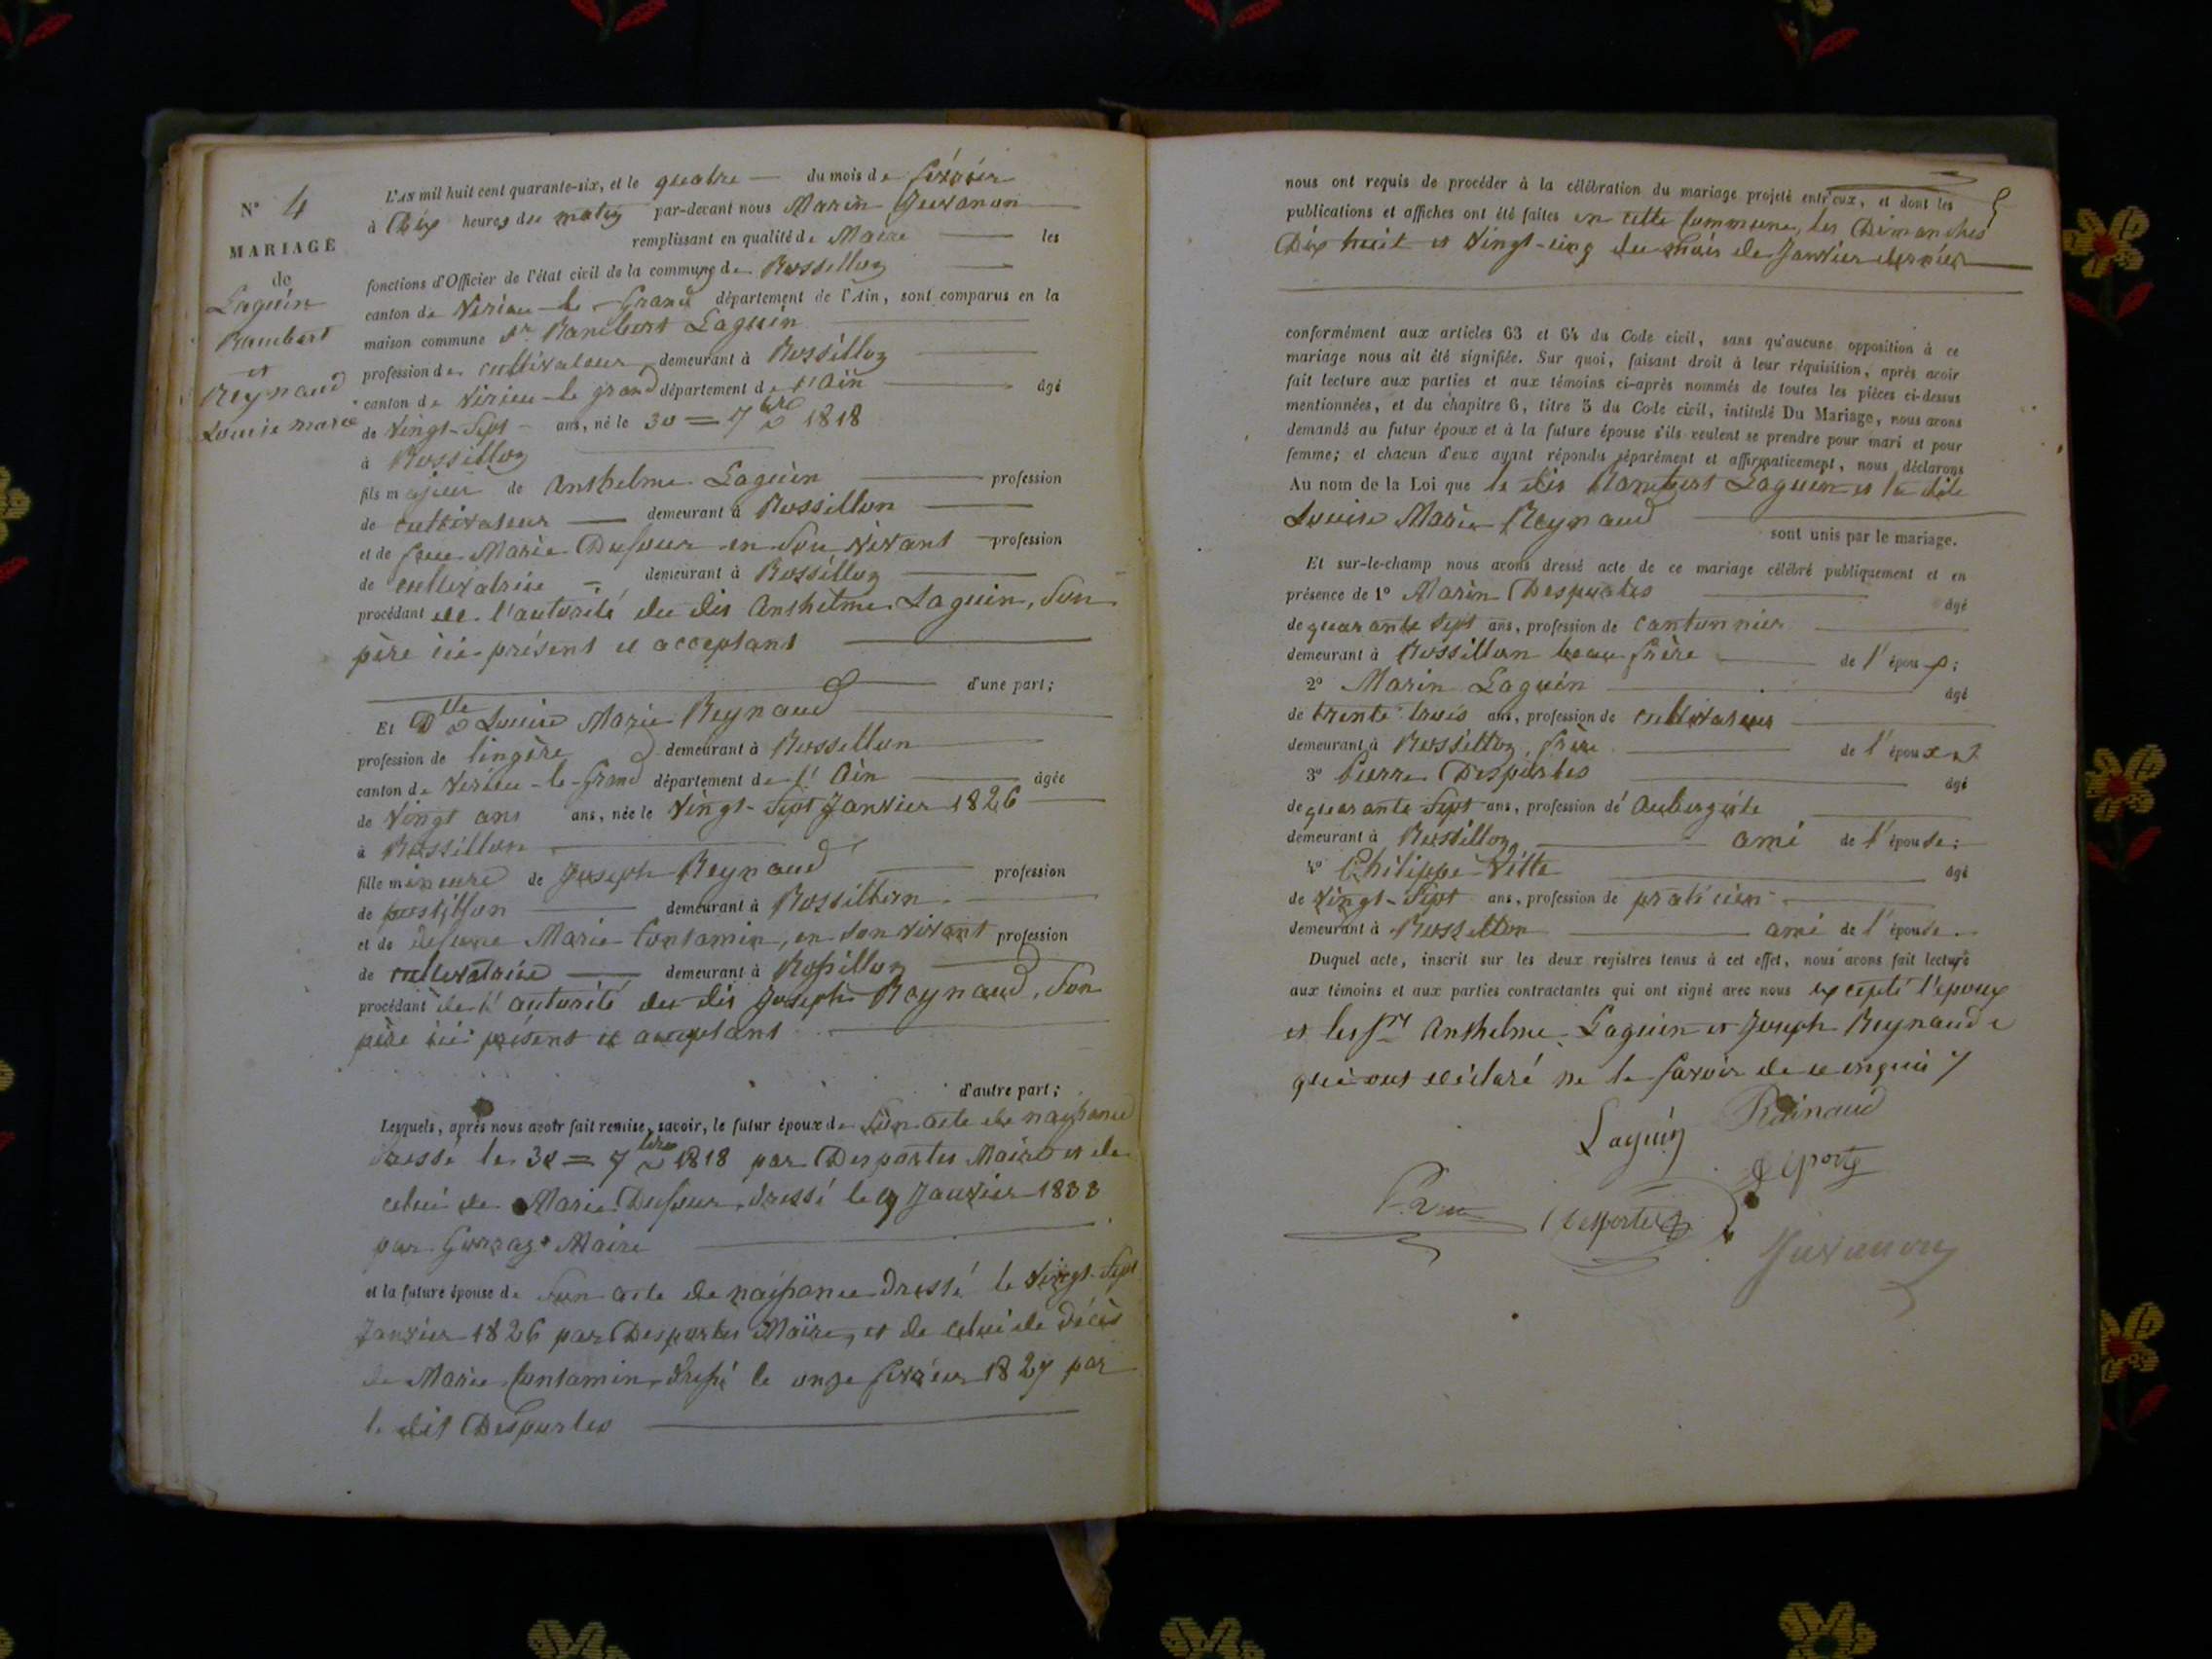 N° 4
MARIAGE
de
Laguin
Rambert
et
Reynaud
Louise marie
L'AN mil huit cent quarante-six, et le quatre du mois de février
à Dix heures du matin par-devant nous Marin Juvanon
remplissant en qualité de Maire les
fonctions d'Officier de l'état civil de la commune de Rossillon
canton de Virieu-le-Grand département de l'Ain, sont comparus en la
maison commune Sr Rambert Laguin
profession de cultivateur demeurant à Rossillon
canton de Virieu-le grand département de l'Ain âgé
de Vingt-Sept ans, né le 30 = 7bre 1818
à Rossillon
fils majeur de Anthelme Laguin profession
de cultivateur demeurant à Rossillon
et de feue Marie Dufour en Son vivant profession
de cultivatrice = demeurant à Rossillon
procédant de l'autorité du dit Anthelme Laguin, Son
père ici présent et acceptant
d'une part;
Et Dlle Louise Marie Reynaud
profession de lingère demeurant à Rossillon
canton de Virieu-le-Grand département de l'Ain âgée
de Vingt ans ans, née le Vingt-Sept Janvier 1826
à Rossillon
fille mineure de Joseph Reynaud profession
de postillon demeurant à Rossillon
et de defunte Marie Contamin, en Son vivant profession
de cultivatrice demeurant à Rossillon
procédant de l'autorité du dit Joseph Reynaud, Son
père ici présent et acceptant
d'autre part;
Lesquels, après nous avoir fait remise, savoir, le futur époux de Son acte de naissance
dressé le 30 = 7bre 1818 par Desportes Maire et de
celui de Marie Dufour, dressé le 9 Janvier 1833
par Maire
et la future épouse de Son acte de naissance Dressé le Vingt-Sept
Janvier 1826 par Desportes Maire, et de celui de décès
de Marie Contamin dressé le onze février 1827 par
le dit Desportes
nous ont requis de procéder à la célébration du mariage projeté entr'eux, et dont les
publications et affiches ont été faites en cette Commune, les Dimanches
Dix huit et Vingt-cinq du mois de Janvier dernier
conformément aux articles 63 et 64 du Code civil, sans qu'aucune opposition à ce
mariage nous ait été signifiée. Sur quoi, faisant droit à leur réquisition, après avoir
fait lecture aux parties et aux témoins ci-après nommés de toutes les pièces ci-dessus
mentionnées, et du chapitre 6, titre 5 du Code civil, intitulé Du Mariage, nous avons
demandé au futur époux et à la future épouse s'ils veulent se prendre pour mari et pour
femme; et chacun d'eux ayant répondu séparément et affirmativement, nous déclarons
Au nom de la Loi que le dit Rambert Laguin et la dite
Louise Marie Reynaud
sont unis par le mariage.
Et sur-le-champ nous avons dressé acte de ce mariage célébré publiquement et en
présence de 1° Marin Desportes âgé
de quarante Sept ans, profession de cantonnier
demeurant à Rossillon beau frère de l'époux;
2° Marin Laguin âgé
de trente trois ans, profession de cultivateur
demeurant à Rossillon, frère de l'époux
3° Pierre Desportes âgé
de quarante Sept ans, profession de Aubergiste
demeurant à Rossillon, ami de l'épouse;
4° Philippe Vitte âgé
de Vingt-Sept ans, profession de praticien
demeurant à Rossillon ami de l'épouse.
Duquel acte, inscrit sur les deux registres tenus à cet effet, nous avons fait lecture
aux témoins et aux parties contractantes qui ont signé avec nous excepté l'époux
et les Srs Anthelme Laguin et Joseph Reynaud
qui ont déclaré ne le savoir de ce enquis
Laguin Rainaud
deporte
Desportes
Juvanon